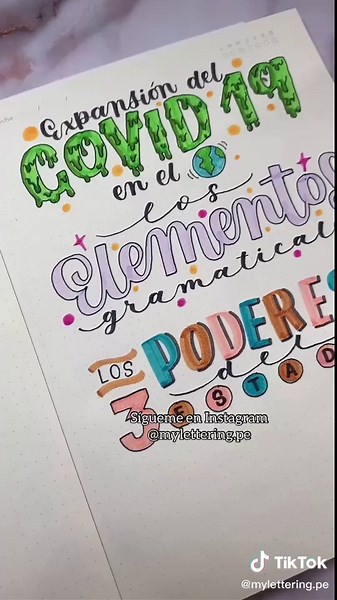 Expansión del
COVID 19
en el
los
Elementos
gramatical
LOS PODERES
del
3 ESTAD
Sígueme en Instagram
@mylettering.pe
TikTok
@mylettering.pe